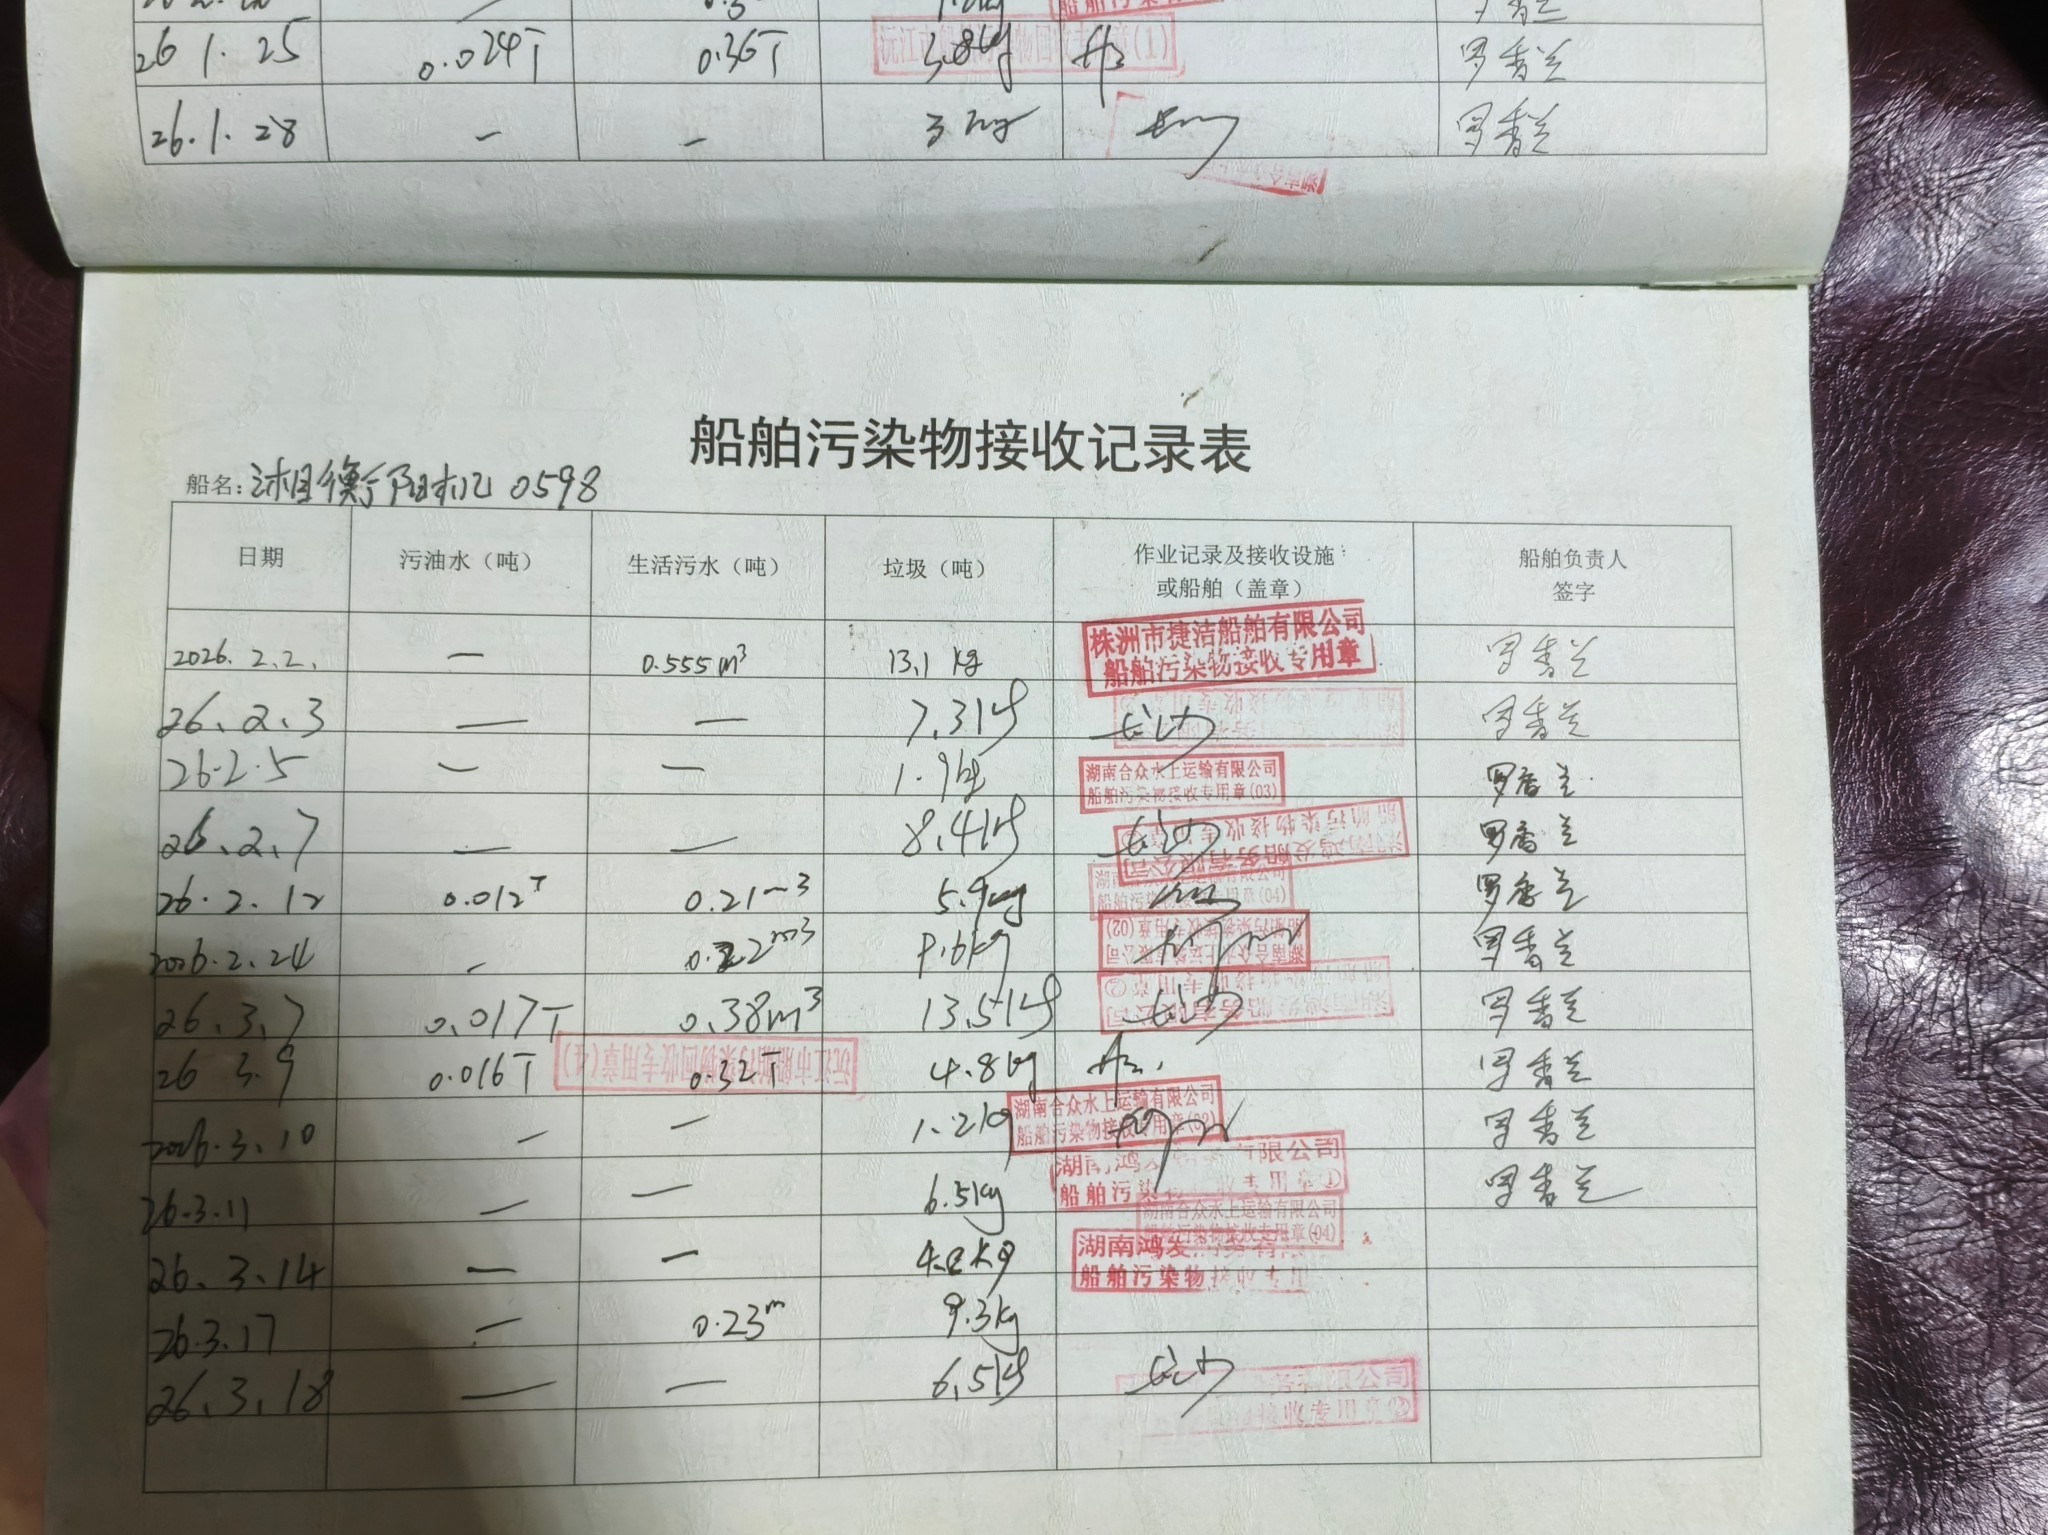 26 1. 25 0.024T 0.36T 3.8kg 罗香兰
26.1.28 — — 3 kg 罗香兰
船舶污染物接收记录表
船名: 湘衡阳机 0598
日期 污油水（吨） 生活污水（吨） 垃圾（吨） 作业记录及接收设施或船舶（盖章） 船舶负责人签字
2026.2.2. — 0.555m³ 13.1 kg 株洲市捷洁船舶有限公司 船舶污染物接收专用章 罗香兰
26.2.3 — — 7.3kg 长沙 罗香兰
26.2.5 — — 1.9kg 湖南合众水上运输有限公司 船舶污染物接收专用章(03) 罗香兰
26.2.7 — — 8.4kg 长沙 罗香兰
26.2.12 0.012T 0.21m3 5.9kg 罗香兰
2026.2.24 - 0.22m3 9.6kg 湖南合众水上运输有限公司 船舶污染物接收专用章(02) 罗香兰
26.3.7 0.017T 0.38m3 13.5kg 长沙 罗香兰
26 3.9 0.016T 0.32T 4.8kg 沅江市船舶污染物回收专用章(4) 罗香兰
2026.3.10 — — 1.2kg 湖南合众水上运输有限公司 船舶污染物接收专用章(02) 罗香兰
26.3.11 — — 6.5kg 罗香兰
湖南合众水上运输有限公司
船舶污染物接收专用章(04)
26.3.14 — — kg 湖南鸿发 船舶污染物接收专用
26.3.17 — 0.23m 9.3kg
26.3.18 — — 6.5kg 长沙 有限公司 接收专用章②